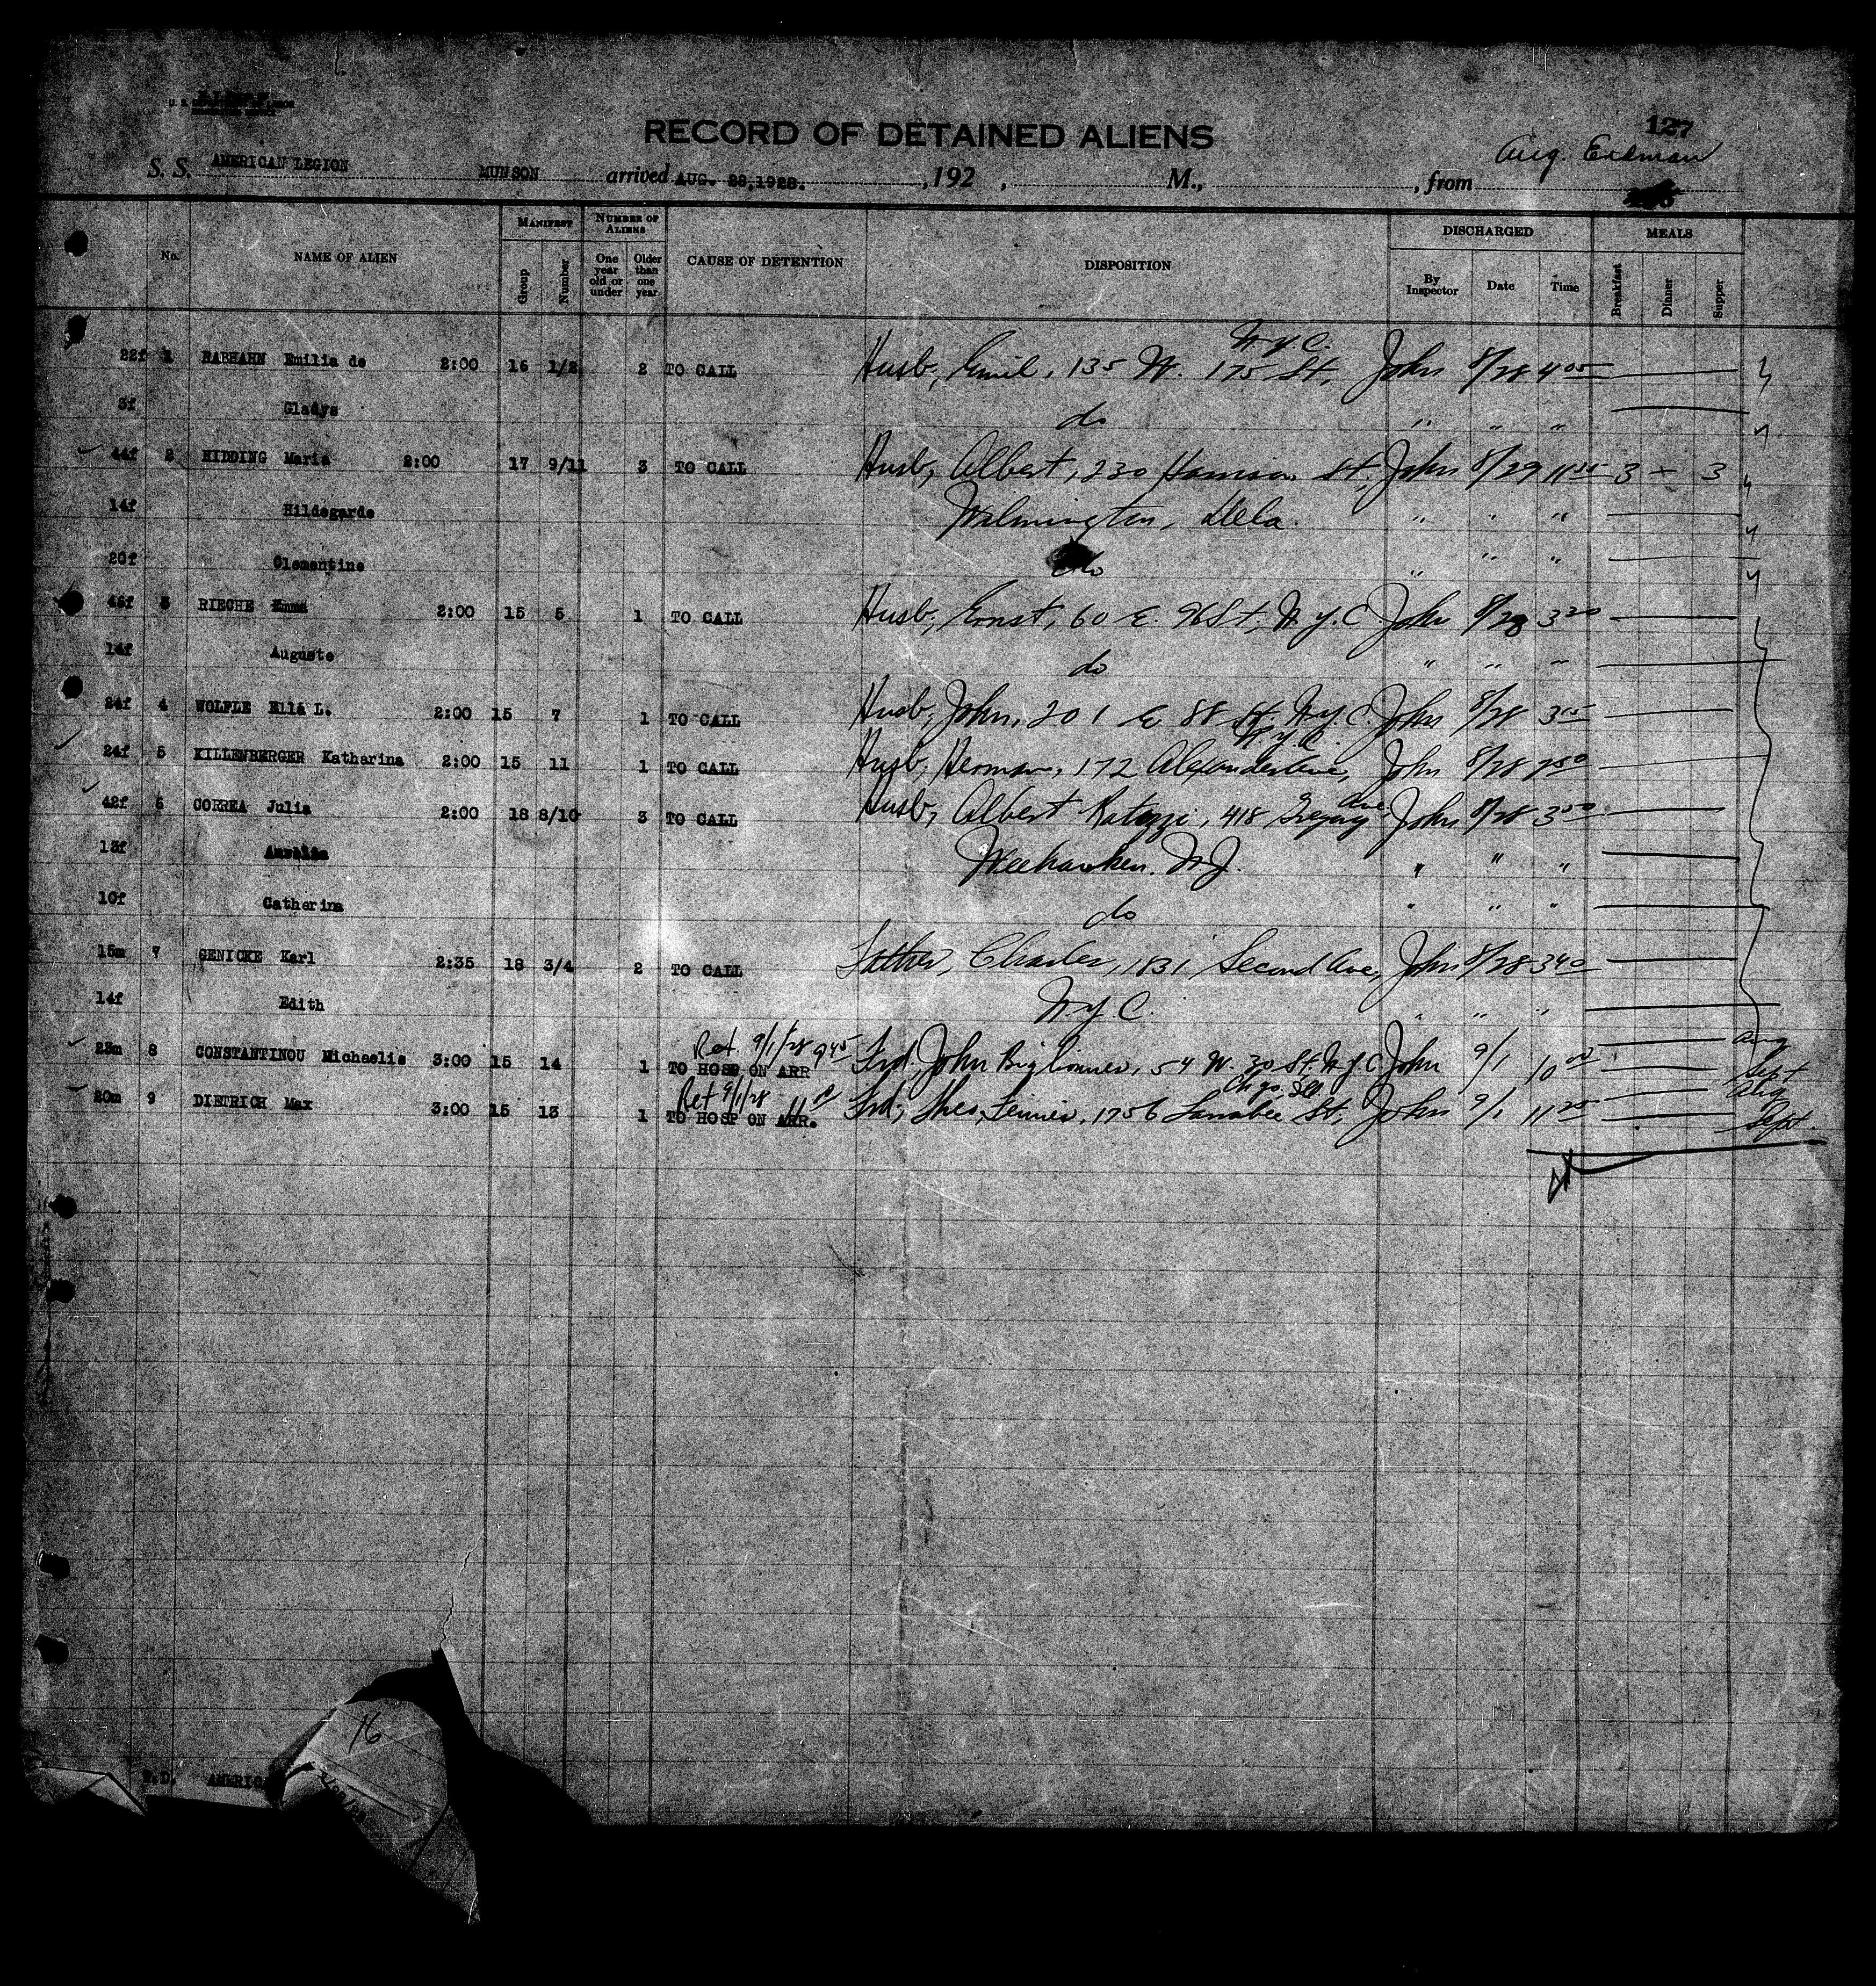 127
RECORD OF DETAINED ALIENS
Aug. Erdman
S. S. AMERICAN LEGION MUNSON arrived AUG. 28,1928. , 192 , M., , from
MANIFEST NUMBER OF ALIENS DISCHARGED MEALS
No. NAME OF ALIEN Group Number One year old or under Older than one year CAUSE OF DETENTION DISPOSITION By Inspector Date Time Breakfast Dinner Supper
N.Y.C.
22f 1 RABHAHN Emilia de 2:00 16 1/2 2 TO CALL Husb, Emil, 135 W. 175 St, John 8/28 4 05
3f Gladys do " " "
44f 2 HIDDING Maria 2:00 17 9/11 3 TO CALL Husb, Albert, 230 Harrison St, John 8/29 11 3 - 3
14f Hildegarde Wilmington, Dela. " " "
20f Clementine do " " "
46f 3 RIECHE Emma 2:00 15 5 1 TO CALL Husb, Ernst, 60 E. 96 St, N.Y.C. John 8/28 3 20
14f Auguste do " " "
24f 4 WOLFLE Ella L. 2:00 15 7 1 TO CALL Husb, John, 201 E 88 St. N.Y.C. John 8/28 3
N.Y.C.
24f 5 KILLENBERGER Katharina 2:00 15 11 1 TO CALL Husb, Herman, 172 Alexander Ave, John 8/28 2 50
42f 6 CORREA Julia 2:00 18 8/10 3 TO CALL Husb, Albert Ratozzi, 418 Gregory Ave. John 8/28 3
13f Weehawken. N.J. " " "
10f Catherina do " " "
15m 7 GENICKE Karl 2:35 18 3/4 2 TO CALL Father, Charles, 1831 Second Ave, John 8/28 3 40
14f Edith N.Y.C. " " "
Ret. 9/1/28 9 45 Aug
23m 8 CONSTANTINOU Michaelis 3:00 15 14 1 TO HOSP ON ARR Frd, John 54 W. 30 St. N.Y.C. John 9/1 10 Sept
Ret 9/1/28 11 Chgo, Ill Aug
20m 9 DIETRICH Max 3:00 15 13 1 TO HOSP ON ARR. Frd, Theo, 1756 Larrabee St, John 9/1 11 25 Sept.
16
AMERICA